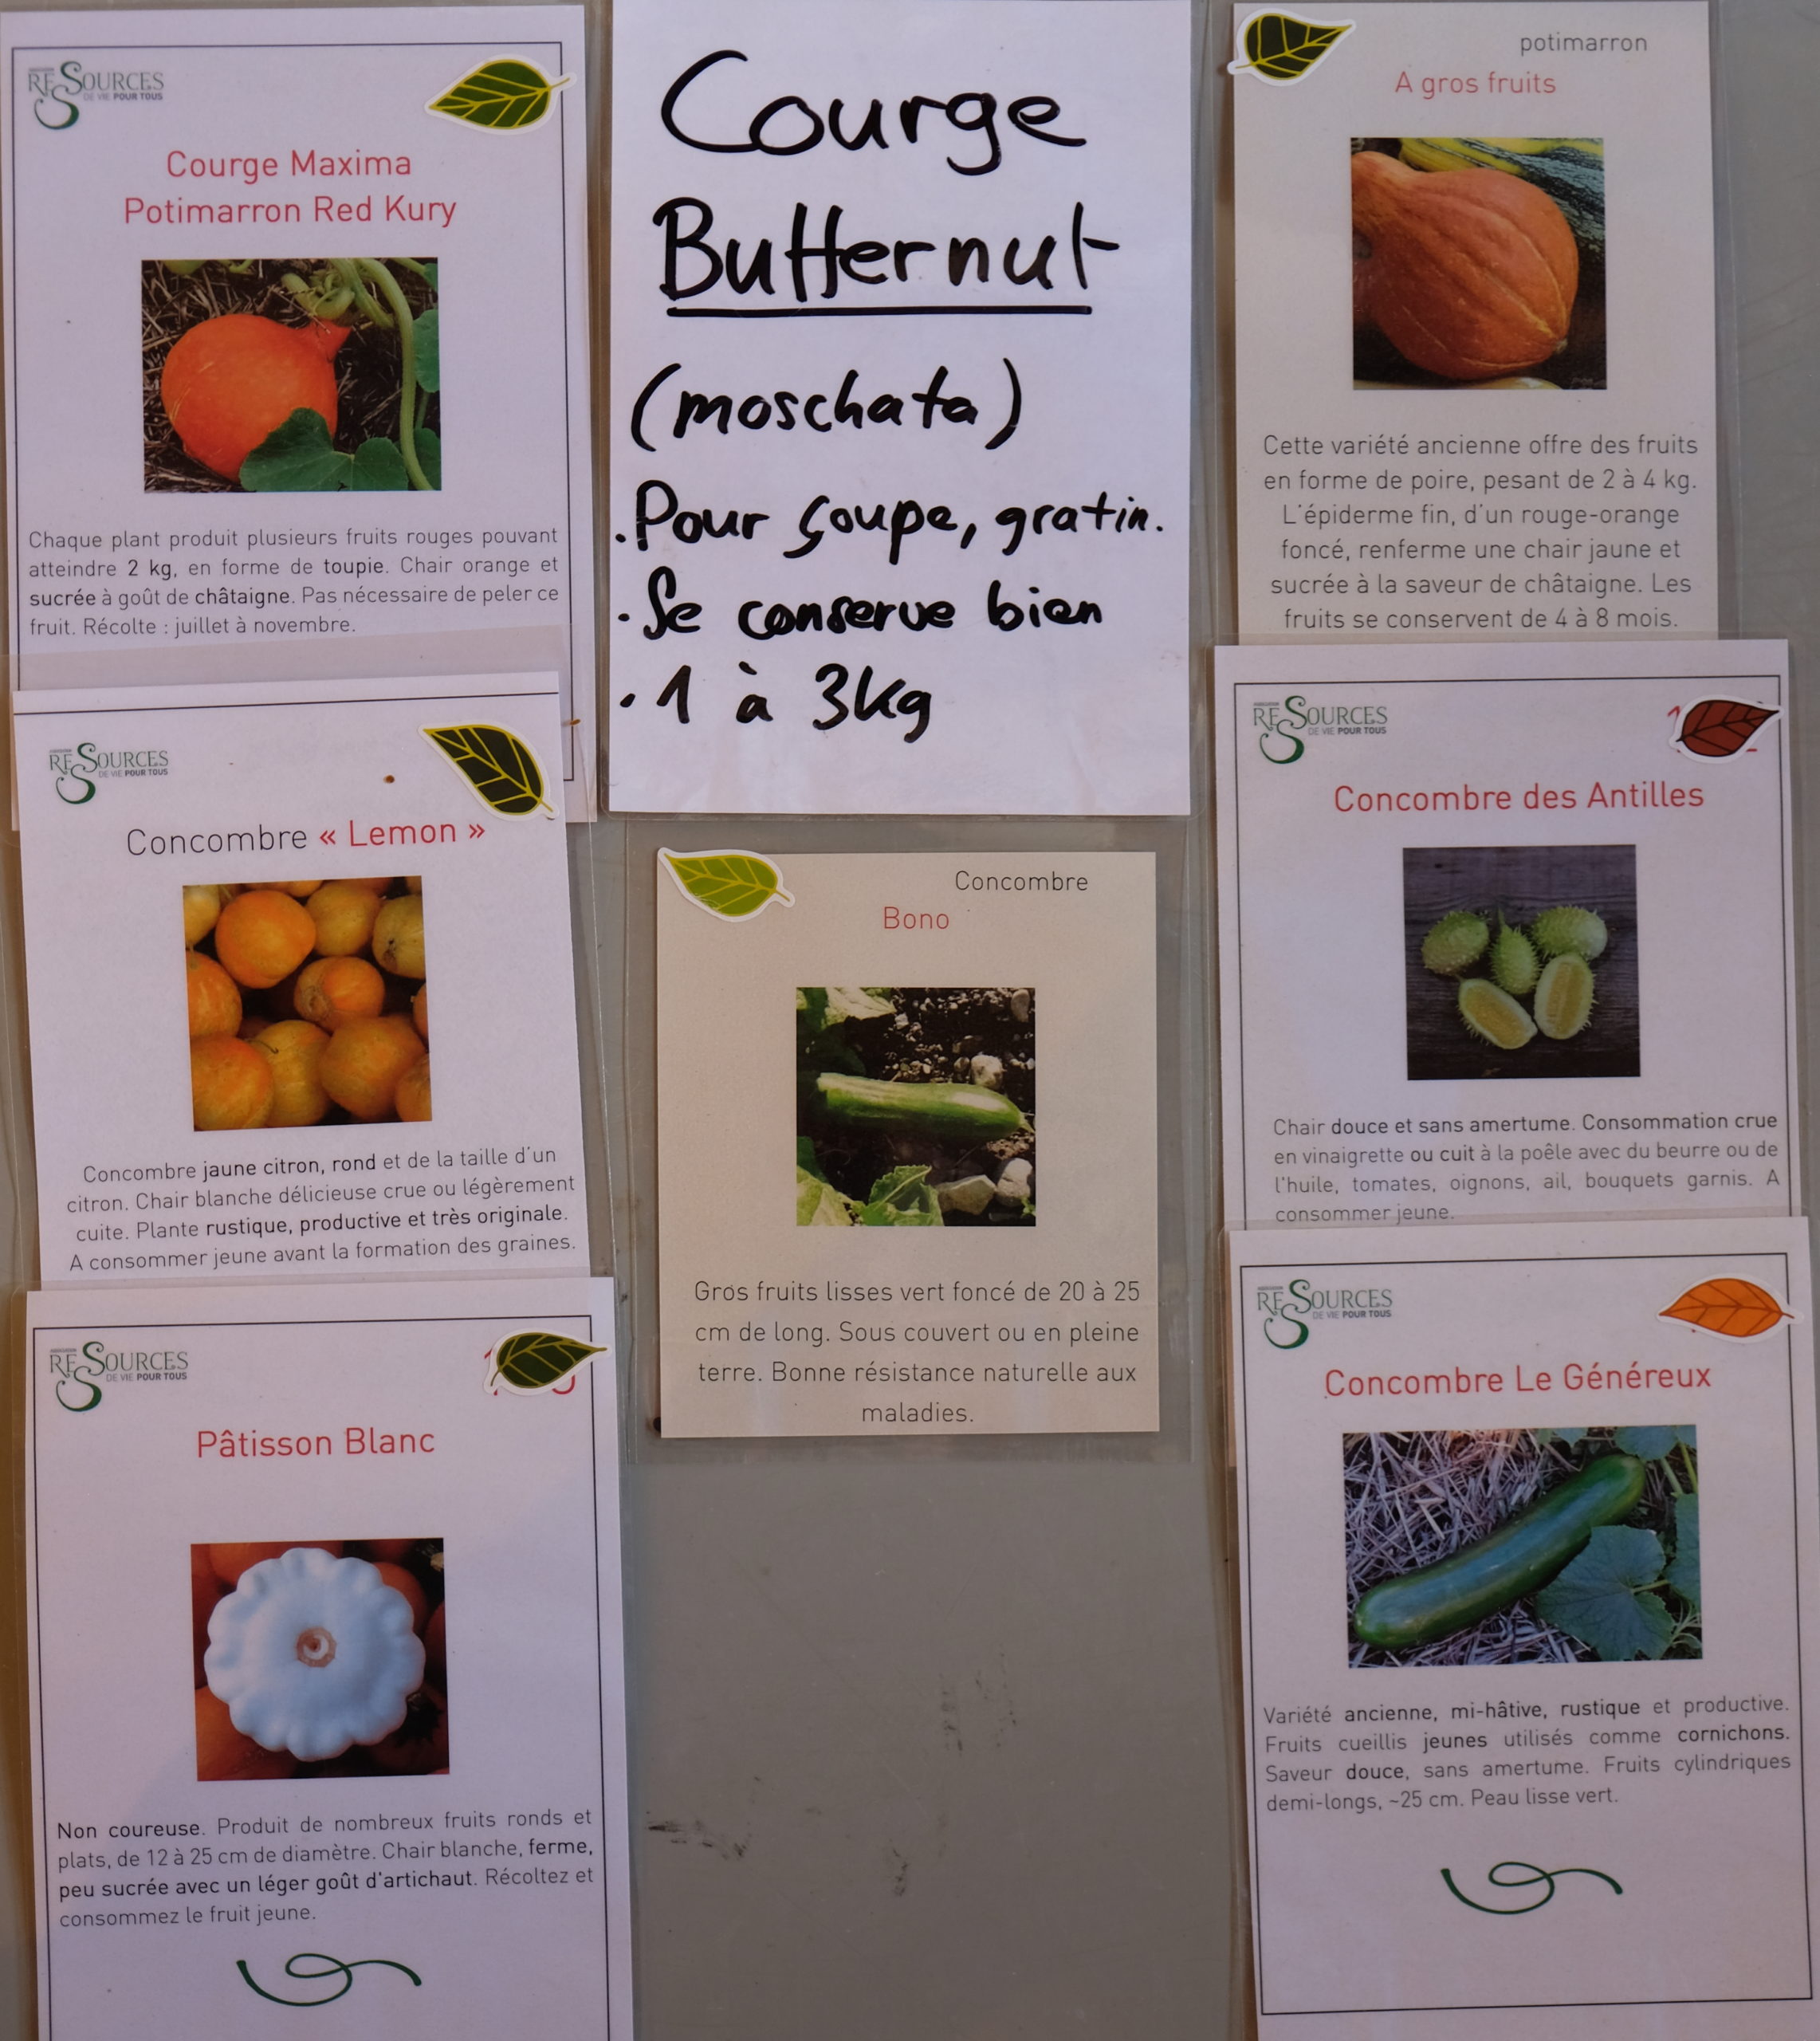 RESSOURCES
DE VIE POUR TOUS
Courge Maxima
Potimarron Red Kury
Chaque plant produit plusieurs fruits rouges pouvant
atteindre 2 kg, en forme de toupie. Chair orange et
sucrée à goût de châtaigne. Pas nécessaire de peler ce
fruit. Récolte : juillet à novembre.
RESSOURCES
DE VIE POUR TOUS
Concombre « Lemon »
Concombre jaune citron, rond et de la taille d'un
citron. Chair blanche délicieuse crue ou légèrement
cuite. Plante rustique, productive et très originale.
A consommer jeune avant la formation des graines.
RESSOURCES
DE VIE POUR TOUS
Pâtisson Blanc
Non coureuse. Produit de nombreux fruits ronds et
plats, de 12 à 25 cm de diamètre. Chair blanche, ferme,
peu sucrée avec un léger goût d'artichaut. Récoltez et
consommez le fruit jeune.
Courge
Butternut
(moschata)
.Pour soupe, gratin.
.Se conserve bien
.1 à 3kg
Concombre
Bono
Gros fruits lisses vert foncé de 20 à 25
cm de long. Sous couvert ou en pleine
terre. Bonne résistance naturelle aux
maladies.
potimarron
A gros fruits
Cette variété ancienne offre des fruits
en forme de poire, pesant de 2 à 4 kg.
L'épiderme fin, d'un rouge-orange
foncé, renferme une chair jaune et
sucrée à la saveur de châtaigne. Les
fruits se conservent de 4 à 8 mois.
RESSOURCES
DE VIE POUR TOUS
Concombre des Antilles
Chair douce et sans amertume. Consommation crue
en vinaigrette ou cuit à la poêle avec du beurre ou de
l'huile, tomates, oignons, ail, bouquets garnis. A
consommer jeune.
RESSOURCES
DE VIE POUR TOUS
Concombre Le Généreux
Variété ancienne, mi-hâtive, rustique et productive.
Fruits cueillis jeunes utilisés comme cornichons.
Saveur douce, sans amertume. Fruits cylindriques
demi-longs, ~25 cm. Peau lisse vert.